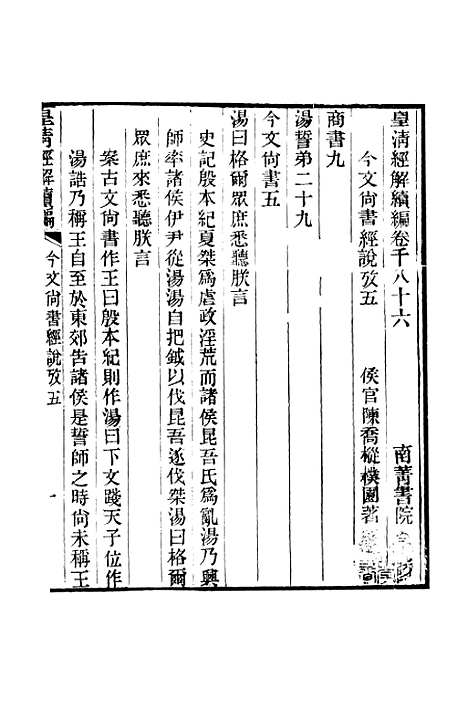 皇清經解續編卷千八十六
南菁書院
今文尚書經說攷五
侯官陳喬樅樸園著
商書九
湯誓弟二十九
今文尚書五
湯曰格爾眾庶悉聽朕言
史記殷本紀夏桀爲虐政淫荒而諸侯昆吾氏爲亂湯乃興
師率諸侯伊尹從湯湯自把鉞以伐昆吾遂伐桀湯曰格爾
眾庶來悉聽朕言
案古文尚書作王曰殷本紀則作湯曰下文踐天子位作
湯誥乃稱王自至於東郊告諸侯是誓師之時尚未稱王
皇清經解續編
今文尚書經說攷五
一